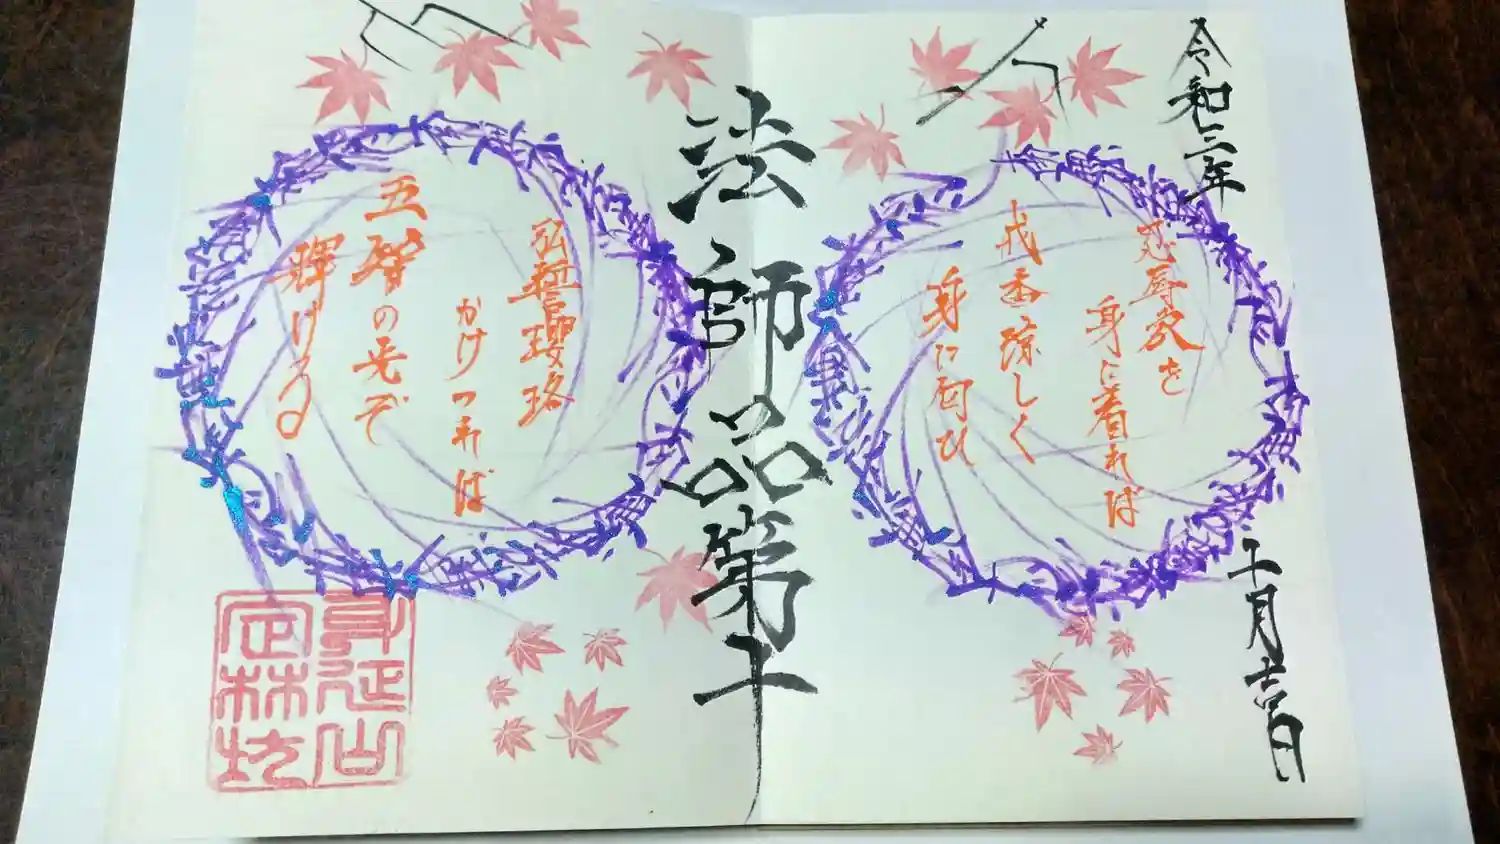 令和三年
十月吉日
忍辱衣を
身に着れば
戒香涼しく
身に匂ひ
法師品第十
弘誓瓔珞
かけつれば
五智の光ぞ
輝ける
身延山
定林坊